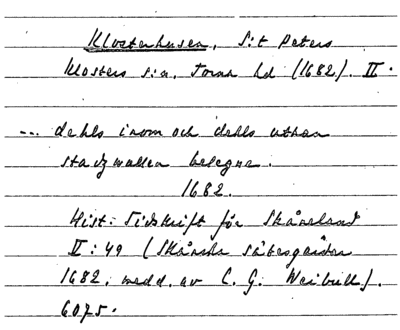 Klosterhusen, S:t Peters
Klosters s:n, Torna hd (1682). II.
... dehls inom och dehls uthan
stadzwallen belegne.
1682.
Hist. Tidskrift för Skåneland
II: 49 (Skånska sätesgårdar
1682, medd. av C. G. Weibull).
6075.